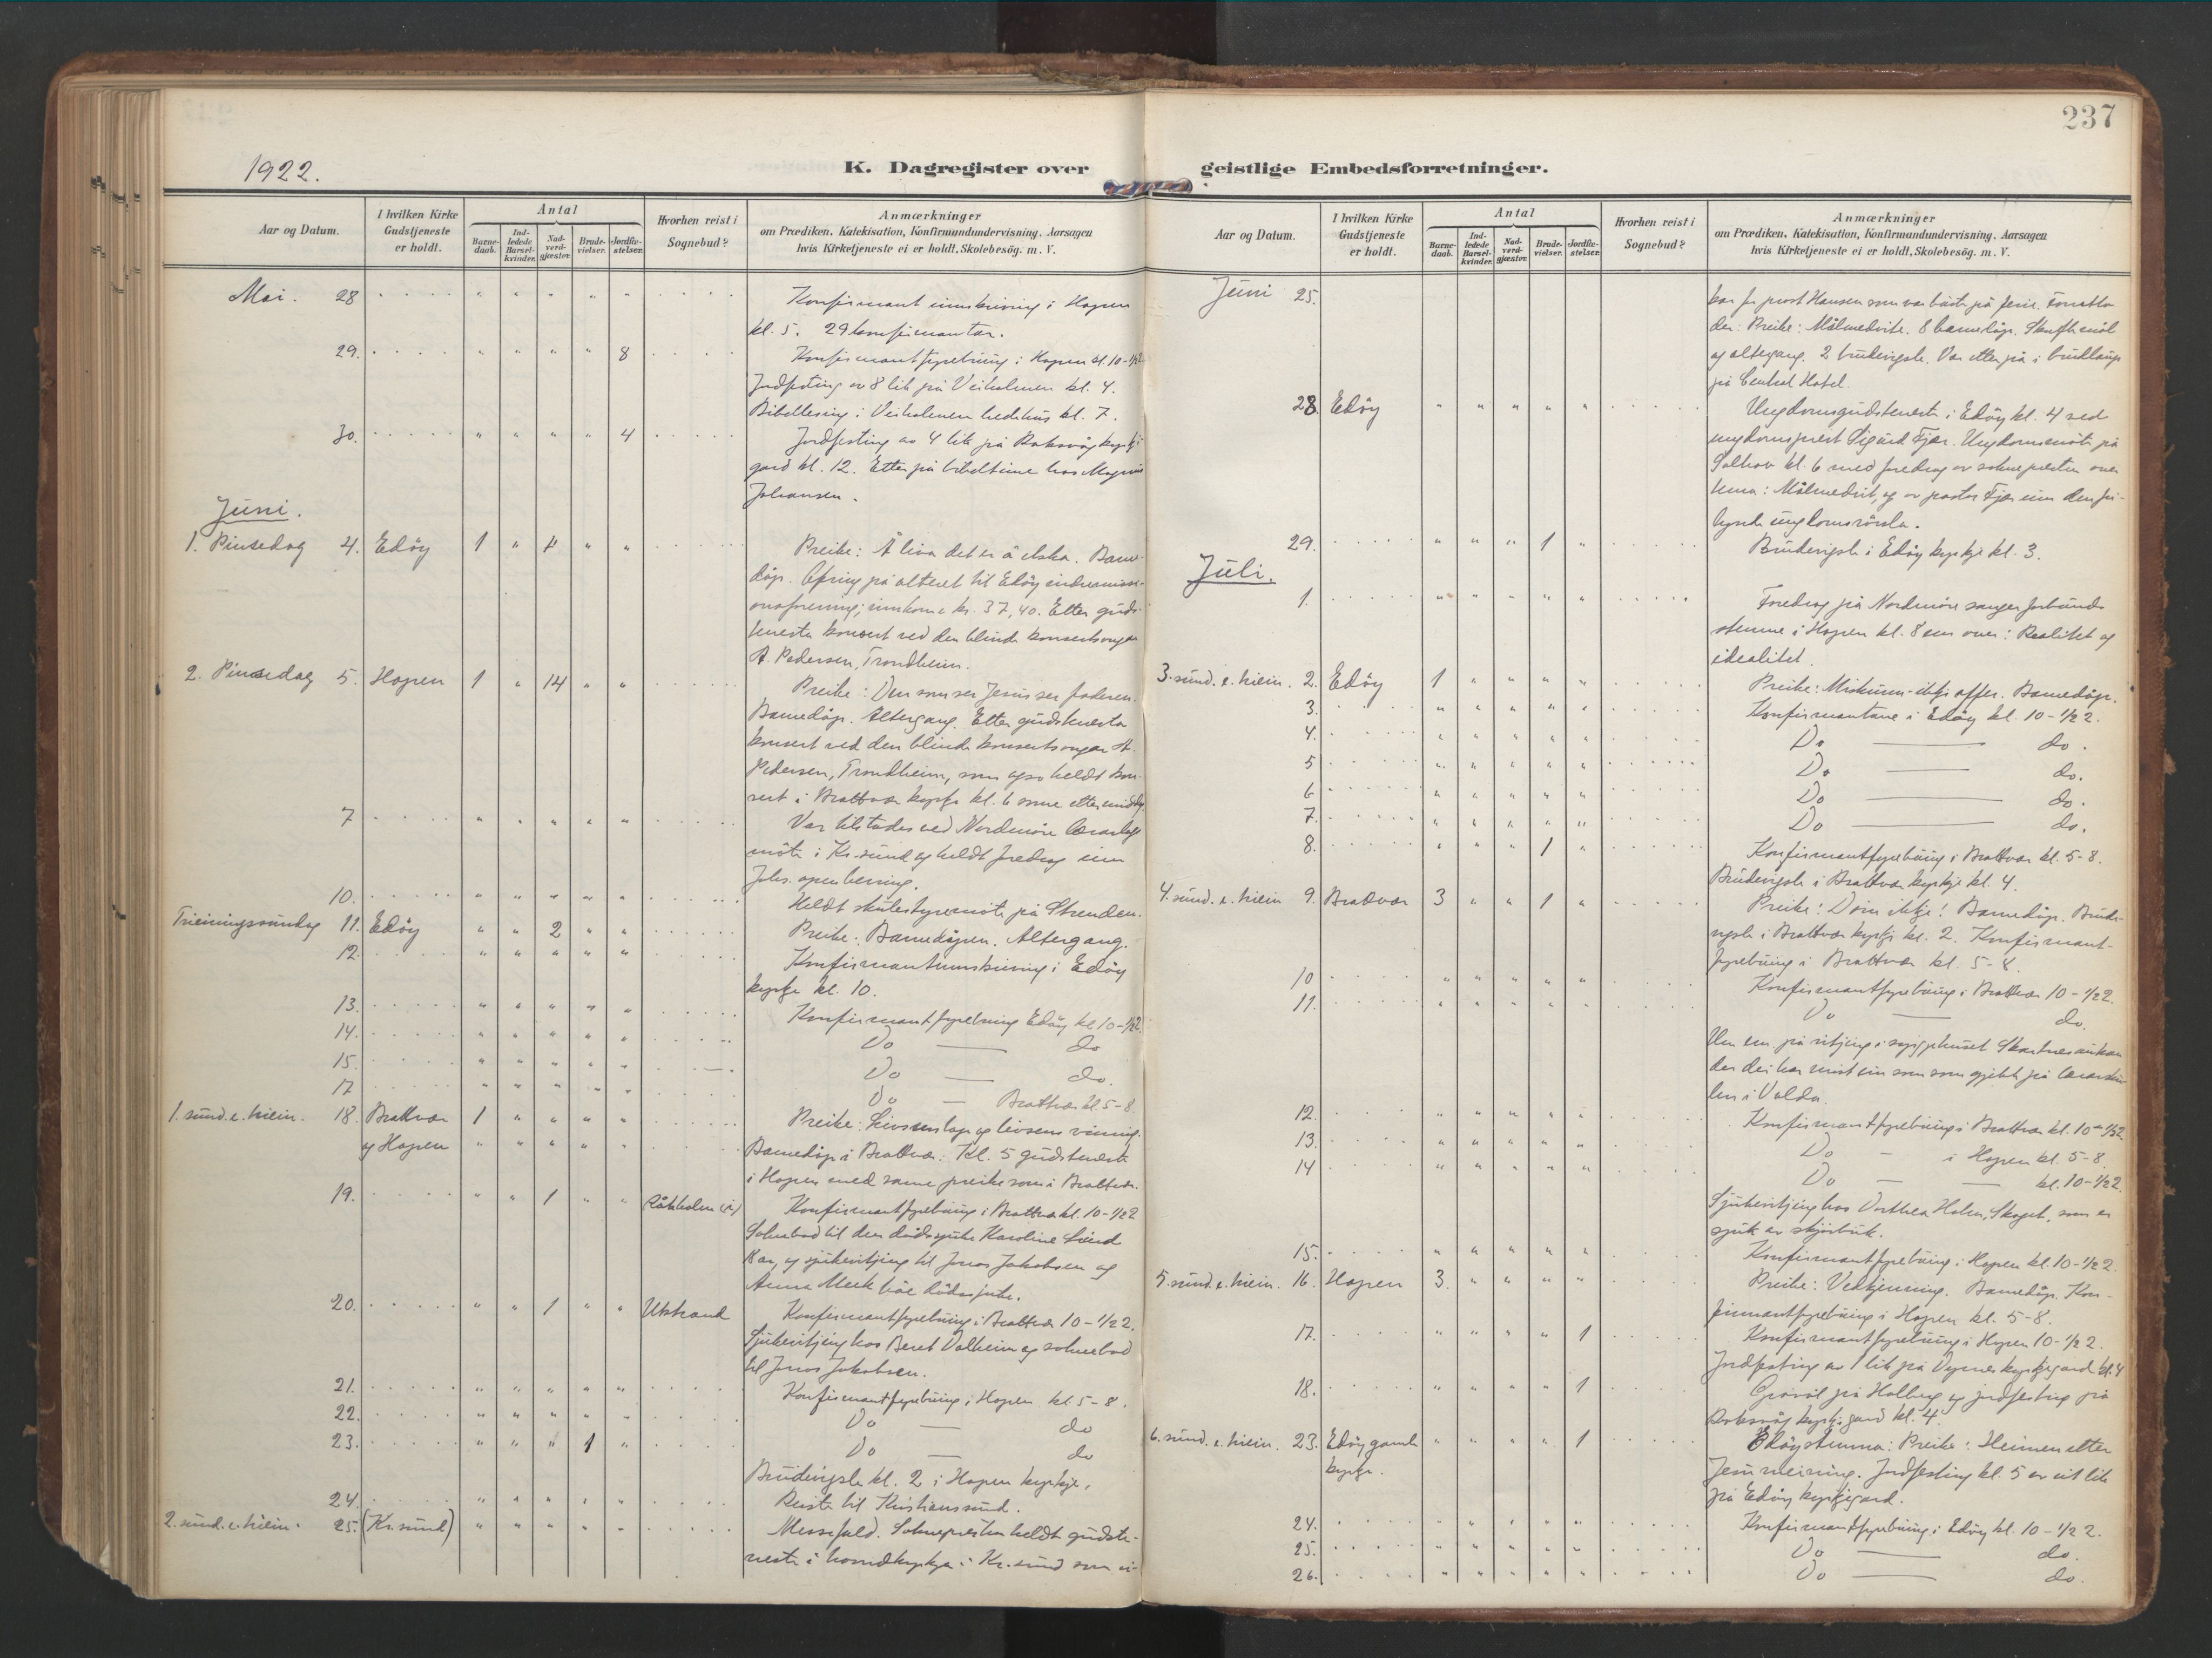 237
1922.
K. Dagregister over geistlige Embedsforretninger.
Aar og Datum.
I hvilken Kirke Gudstjeneste er holdt.
Antal
Barne-daab.
Ind-ledede Barsel-kvinder.
Nad-verd-gjæster.
Brude-vielser.
Jordfæ-stelser.
Hvorhen reist i Sognebud?
Anmærkninger
om Prædiken, Katekisation, Konfirmandundervisning, Aarsagen
hvis Kirketjeneste ei er holdt, Skolebesög. m. V.
Mai. 28 Konfirmant innskriving i Hopen
kl. 5. 29 konfirmantar.
29. 8 Konfirmantfyrebuing i Hopen kl. 10-1/2 2
Jordfesting av 8 lik på Veiholmen kl. 4.
Bibellesing i Veiholmen bedehus kl. 7.
30. 4 Jordfesting av 4 lik på Roksvåg kyrkje
gard kl. 12. Etter på bibeltime hos Magnus
Johansen.
Juni.
1. Pinsedag 4. Edöy 1 " 4 " " Preike: Å liva det er å elska. Barne-
dåp. Ofring på alteret til Edöy indremissi-
onsforening; innkome kr. 37,40. Etter guds-
tenesta konsert ved den blinde konsertsongar
A. Pedersen, Trondheim.
2. Pinsedag 5. Hopen 1 " 14 " " Preike: Den som ser Jesus ser faderen.
Barnedåp. Altergang. Etter gudstenesta
konsert ved den blinde konsertsongar A.
Pedersen, Trondheim, som ogso heldt kon-
sert i Brattvær kyrkje kl. 6 same ettermiddag
7 Var tilstades ved Nordmöre lærarlags
möte i Kr.sund og heldt foredrag um
Johs. openbering.
10. Heldt skulestyremöte på Stranden.
Trieiningssundag 11. Edöy " " 2 " " Preike: Barnedåpen. Altergang.
12. Konfirmantinnskriving i Edöy
kyrkje kl. 10.
13. Konfirmantfyrebuing Edöy kl 10-1/2 2
14. Do — do
15. Do — do.
17 Do — Brattvær kl. 5-8.
1. sund. e. triein. 18. Brattvær 1 " " " " Preike: Livsens tap og livsens vinning.
og Hopen Barnedåp i Brattvær. Kl. 5 gudsteneste
i Hopen med same preike som i Brattvær.
19. " " 1 " " Konfirmantfyrebuing i Brattvær kl. 10-1/2 2
Soknebod til den dödssjuke Karoline
og sjukevitjing til Jonas Jakobsen og
Anna båe dödssjuke.
20. " " 1 " " Utstrand Konfirmantfyrebuing i Brattvær 10-1/2 2.
Sjukevitjing hos Beret Valheim og soknebod
til Jonas Jakobsen.
21. Konfirmantfyrebuing i Hopen kl 5-8.
22. Do — do
23. " " " 1 " Do — do
Brudevigsle kl. 2 i Hopen kyrkje.
24. Reiste til Kristiansund.
2. sund. e. triein. 25. (Kr.sund) Messefald. Soknepresten heldt gudste-
neste i hovudkyrkja i Kr.sund som vi-
Aar og Datum.
I hvilken Kirke Gudstjeneste er holdt.
Antal
Barne-daab.
Ind-ledede Barsel-kvinder.
Nad-verd-gjæster.
Brude-vielser.
Jordfæ-stelser.
Hvorhen reist i Sognebud?
Anmærkninger
om Prædiken, Katekisation, Konfirmandundervisning, Aarsagen
hvis Kirketjeneste ei er holdt, Skolebesög. m. V.
Juni 25. kar for prost Hansen som var burte på ferie. Forretta
der: Preike: Målmedvite. 8 barnedåp. Skriftemål
og altergang. 2 brudevigsle. Var etter på i brudlaup
på Central Hotel.
28. Edöy Ungdomsgudsteneste i Edöy kl. 4 ved
ungdomsprest Sigurd Fjær. Ungdomsmöte på
Solhov kl. 6 med foredrag av soknepresten over
tema: Målmedvit, og av pastor Fjær um den fri-
lynde ungdomsrörsla.
29. " " " 1 " Brudevigsle i Edöy kyrkje kl. 3.
Juli.
1. Foredrag på Nordmöre songarforbunds
stemne i Hopen kl. 8 em over: Realitet og
idealitet.
3. sund. e. triein. 2. Edöy 1 " " " " Preike: Miskunn - ikkje offer. Barnedåp.
3. Konfirmantane i Edöy kl. 10-1/2 2.
4. Do — do.
5 Do — do.
6 Do — do.
7. Do — do.
8. " " " 1 " Konfirmantfyrebuing i Brattvær kl. 5-8.
Brudevigsle i Brattvær kyrkje kl. 4.
4. sund. e. triein 9. Brattvær 3 " " 1 " Preike: Döm ikkje! Barnedåp. Brude-
vigsle i Brattvær kyrkje kl. 2. Konfirmant-
fyrebuing i Brattvær kl. 5-8.
10 Konfirmantfyrebuing i Brattvær 10-1/2 2.
11. Do — do.
Um em. på vitjing i syrgjehuset
der dei har mist ein son som gjekk på lærarsku-
len i Volda.
12. Konfirmantfyrebuing i Brattvær kl. 10-1/2 2
13. Do — i Hopen kl. 5-8.
14 Do — — kl. 10-1/2 2.
Sjukevitjing hos Dorthea Holm, Skaget, som er
sjuk av skjörbuk.
15. Konfirmantfyrebuing i Hopen kl. 10-1/2 2.
5. sund. e. triein. 16. Hopen 3. " " " " Preike: Vedkjenning. Barnedåp. Kon-
firmantfyrebuing i Hopen kl. 5-8.
17. " " " " 1 Konfirmantfyrebuing i Hopen 10-1/2 2.
Jordfesting av 1 lik på Dyrnes kyrkjegard kl. 4
18. " " " " 1 Gravöl på Holberg og jordfesting på
Roksvåg kyrkjegard kl. 4.
6. sund. e. triein. 23. Edöy gamle " " " " 1 Edöystemna: Preike: Heimen etter
kyrkje. Jesu meining. Jordfesting kl. 5 av eit lik
på Edöy kyrkjegard.
24. Konfirmantfyrebuing i Edöy kl. 10-1/2 2.
25. Do — do.
26. Do — do.